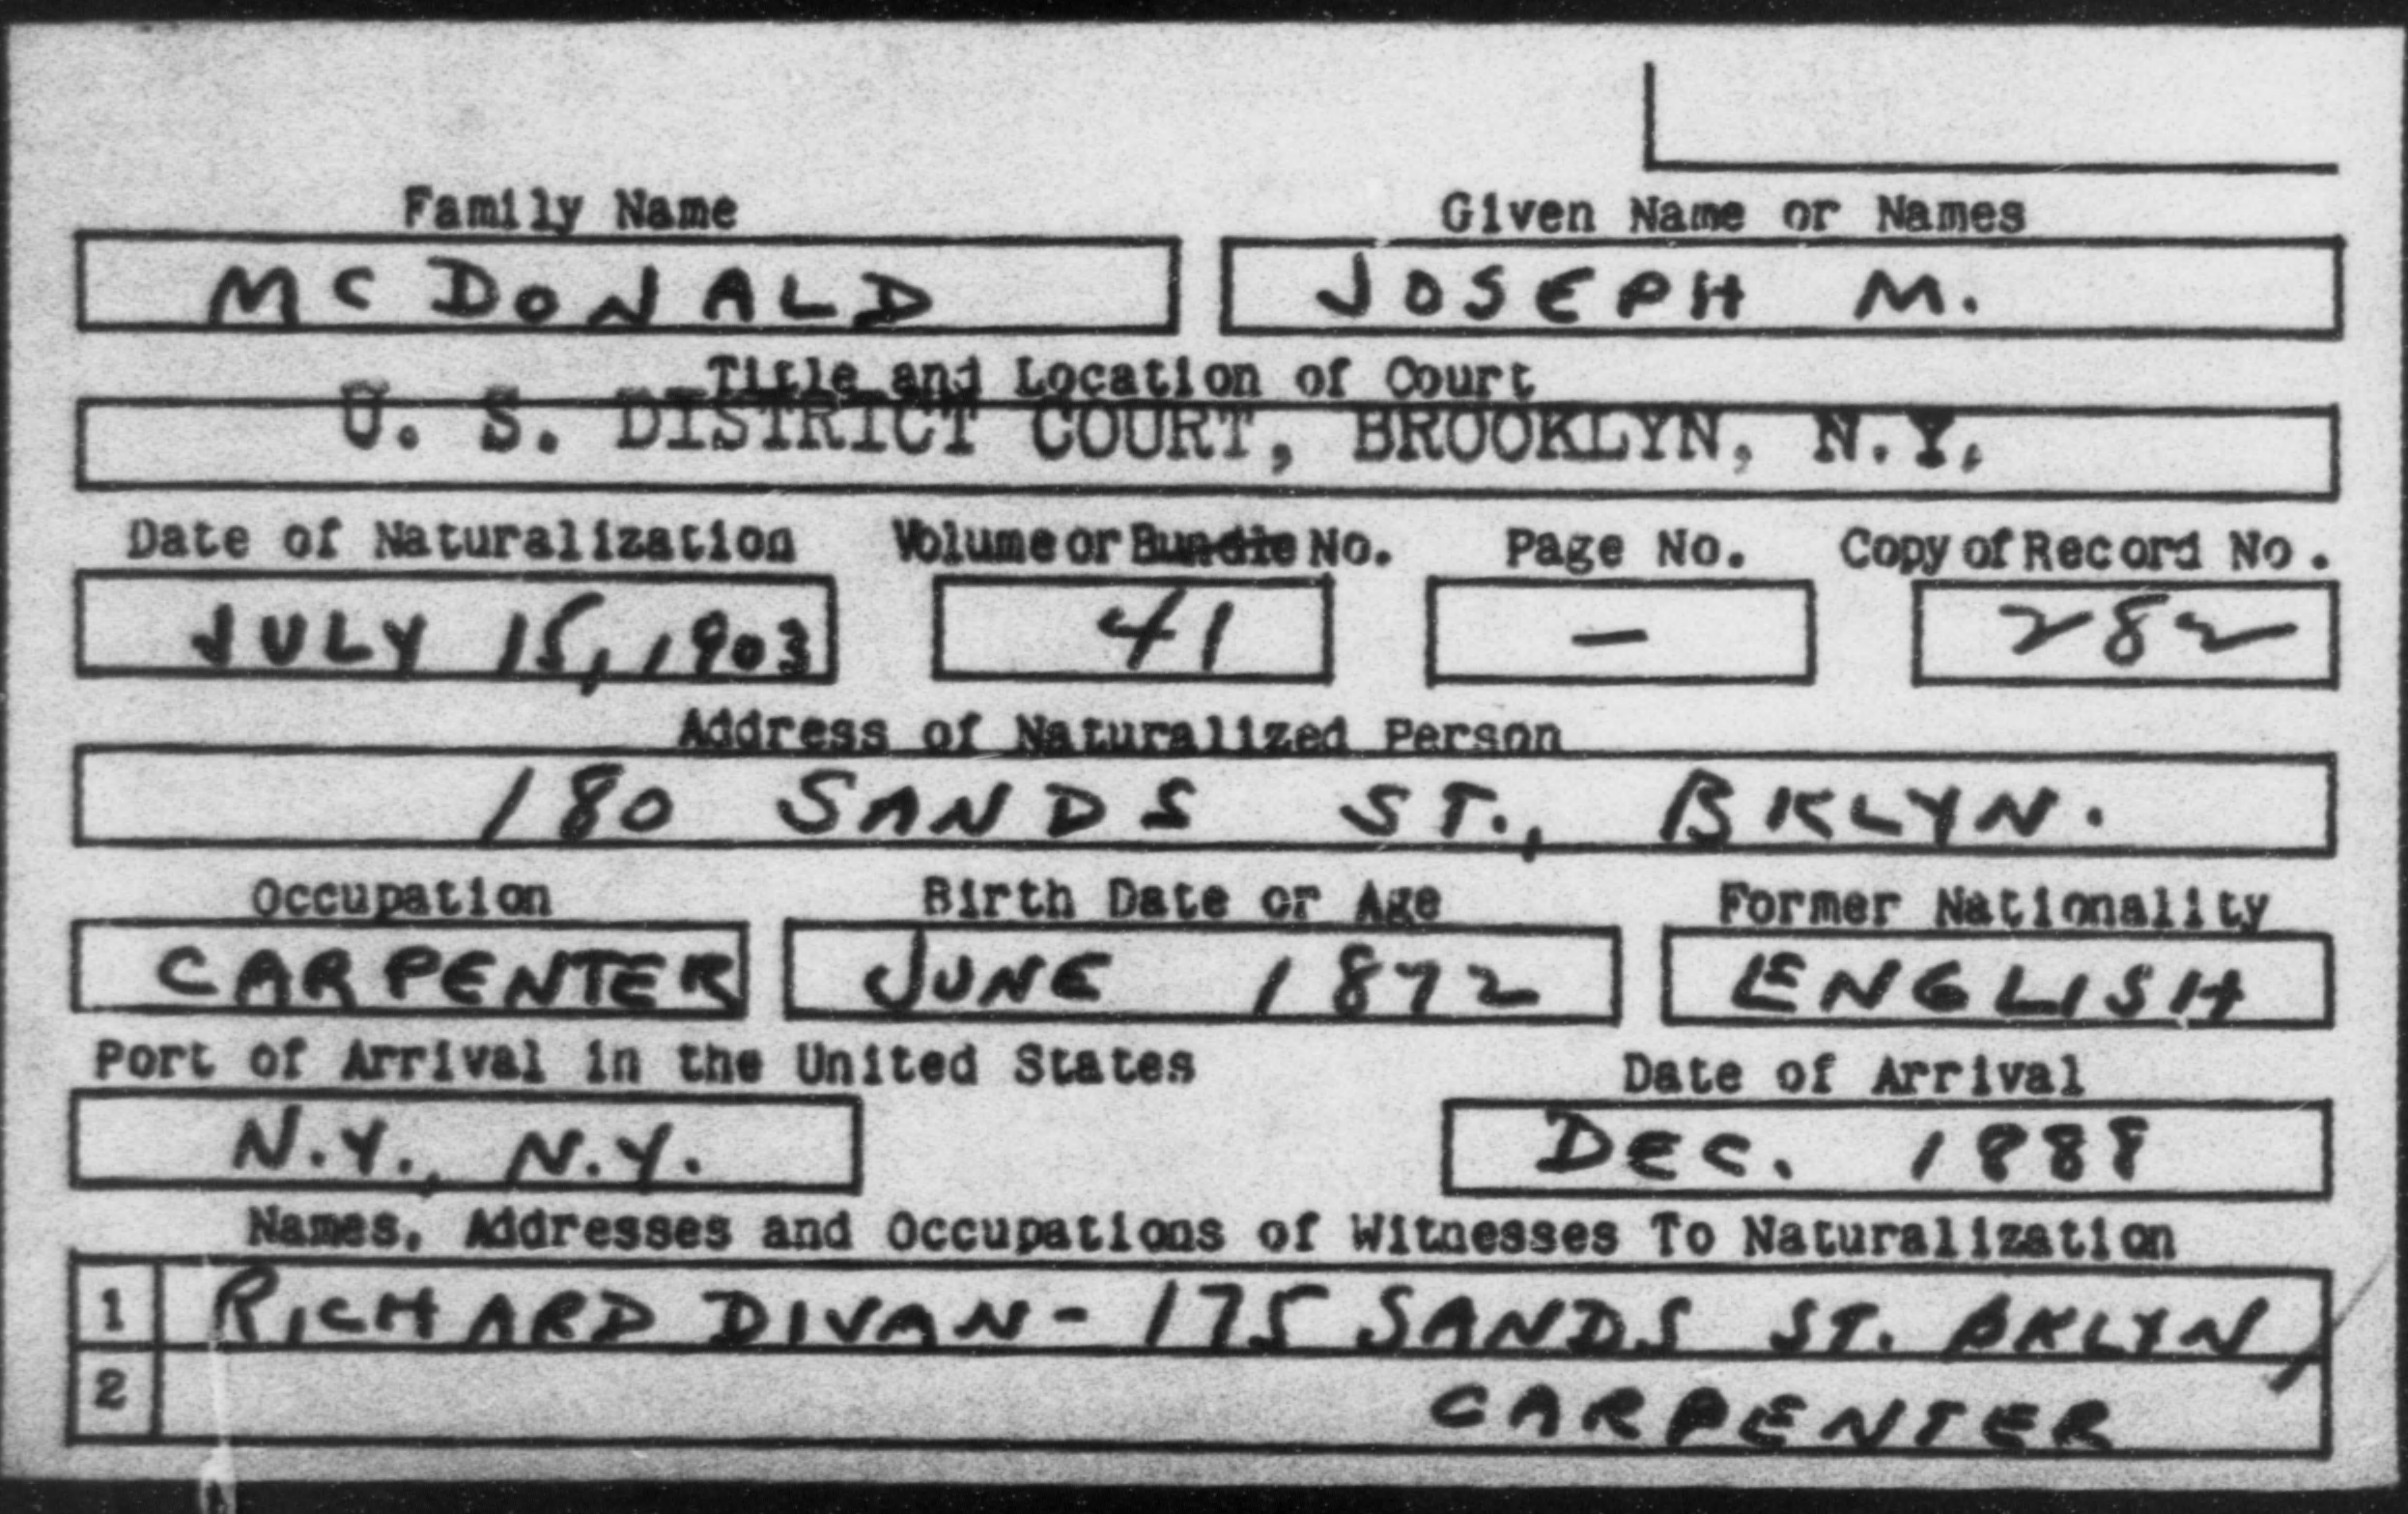 Family Name Given Name or Names
MC DONALD JOSEPH M.
Title and Location of Court
U. S. DISTRICT COURT, BROOKLYN, N.Y.
Date of Naturalization Volume or Bundle No. Page No. Copy of Record No.
JULY 15, 1903 41 - 282
Address of Naturalized Person
180 SANDS ST., BKLYN.
Occupation Birth Date or Age Former Nationality
CARPENTER JUNE 1872 ENGLISH
Port of Arrival in the United States Date of Arrival
N.Y., N.Y. DEC. 1888
Names, Addresses and Occupations of Witnesses To Naturalization
1 RICHARD DIVAN - 175 SANDS ST. BKLYN,
2 CARPENTER